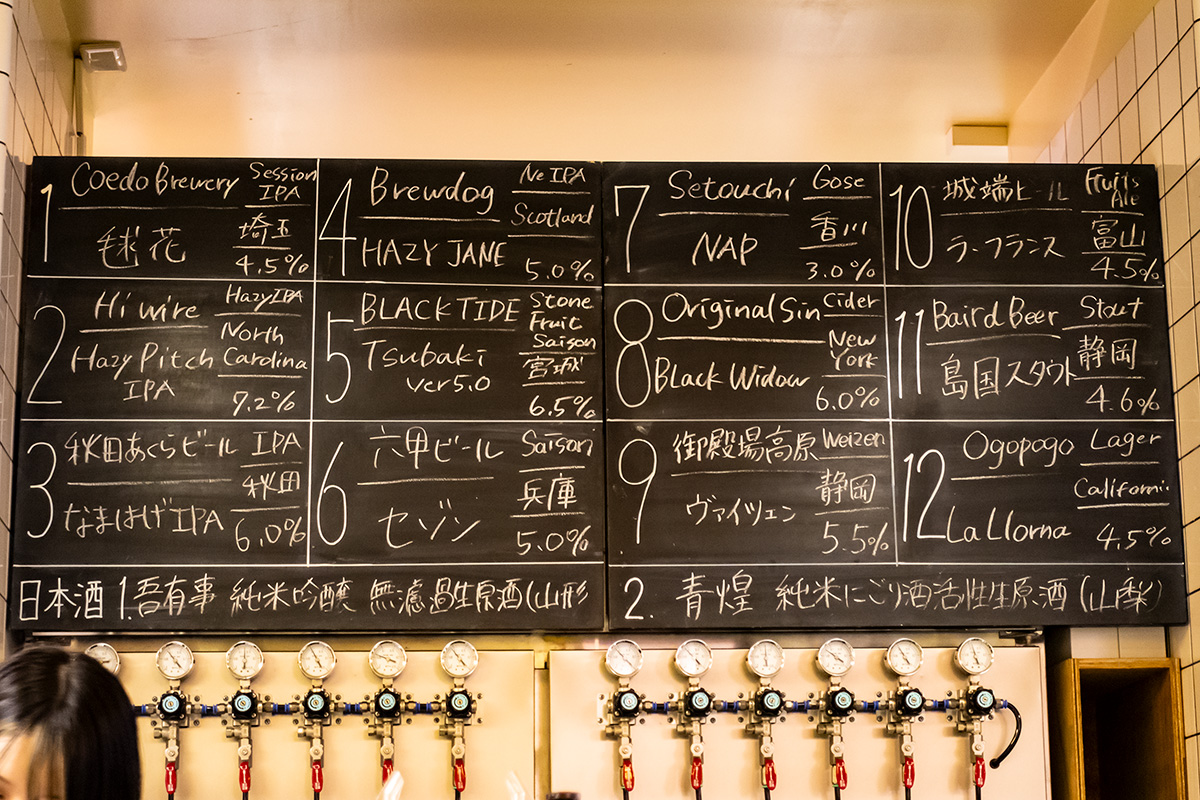 1 Coedo Brewery Session IPA
毬花 埼玉
4.5%
2 Hi wire Hazy IPA
Hazy Pitch IPA North Carolina
7.2%
3 秋田あくらビール IPA
なまはげIPA 秋田
6.0%
4 Brewdog Ne IPA
HAZY JANE Scotland
5.0%
5 BLACK TIDE Stone Fruit Saison
Tsubaki ver5.0 宮城
6.5%
6 六甲ビール Saison
セゾン 兵庫
5.0%
7 Setouchi Gose
NAP 香川
3.0%
8 Original Sin Cider
Black Widow New York
6.0%
9 御殿場高原 Weizen
ヴァイツェン 静岡
5.5%
10 城端ビール Fruits Ale
ラ・フランス 富山
4.5%
11 Baird Beer Stout
島国スタウト 静岡
4.6%
12 Ogopogo Lager
La Llorna Californi
4.5%
日本酒 1.吾有事 純米吟醸 無濾過生原酒(山形
2. 青煌 純米にごり酒活性生原酒(山梨)